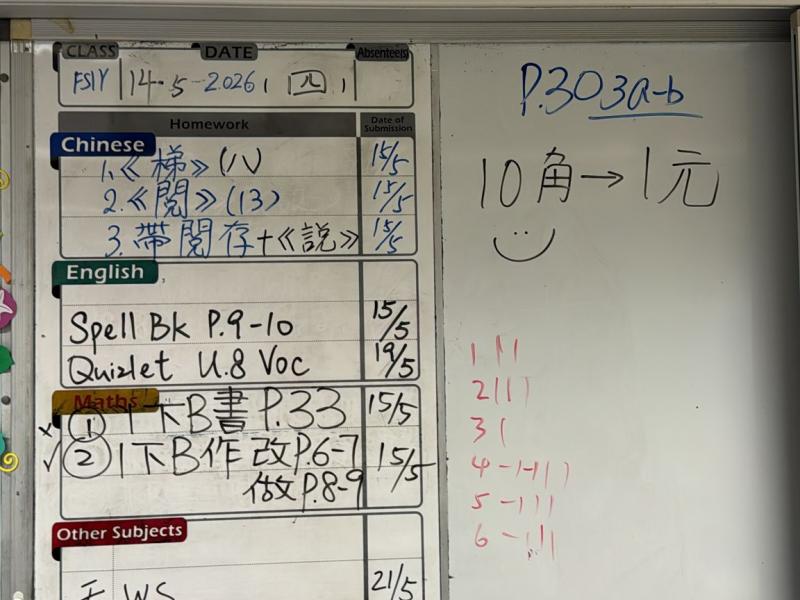 CLASS DATE Absentee(s)
14.5.2026, (四)
Homework Date of Submission
Chinese
1.《梯》(八) 15/5
2.《閱》(13) 15/5
3.帶閱存+《說》 15/5
English
Spell Bk P.9-10 15/5
Quizlet U.8 Voc 19/5
Maths
① 1下B書 P.33 15/5
② 1下B作 改P.6-7 15/5
做P.8-9
Other Subjects
WS 21/5
P.30 3a-b
10角→1元
1
2
3
4
5
6